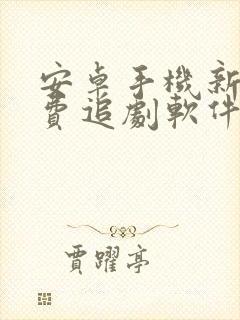 安卓手機新
費追劇軟件
賈躍亭